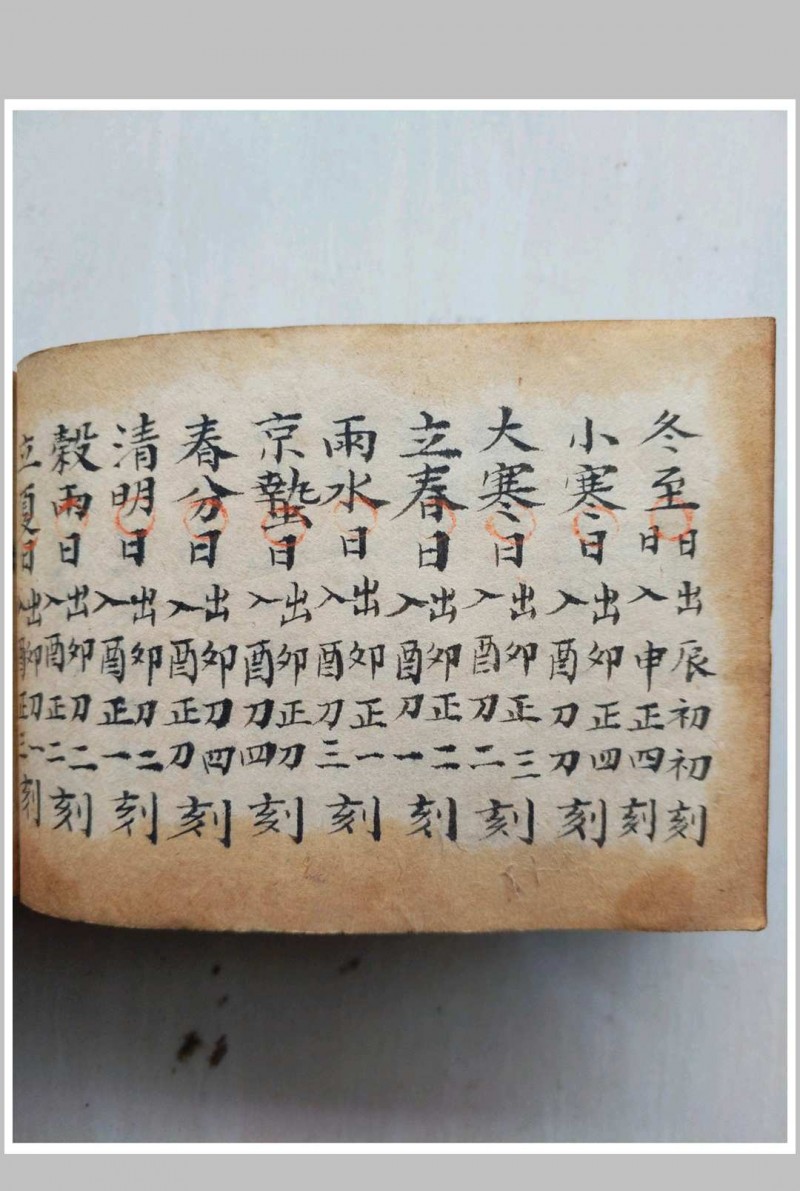 冬至日出辰初初刻日入申正四刻
小寒日出卯正四入酉刀刀刻
大寒日出卯正三入酉刀二刻
立春日出卯正二入酉刀一刻
雨水日出卯正一入酉刀三刻
京蟄日出卯正刀入酉刀四刻
春分日出卯刀四入酉正刀刻
清明日出卯刀二入酉正一刻
穀雨日出卯刀二入酉正二刻
立夏日出卯刀一入酉正三刻